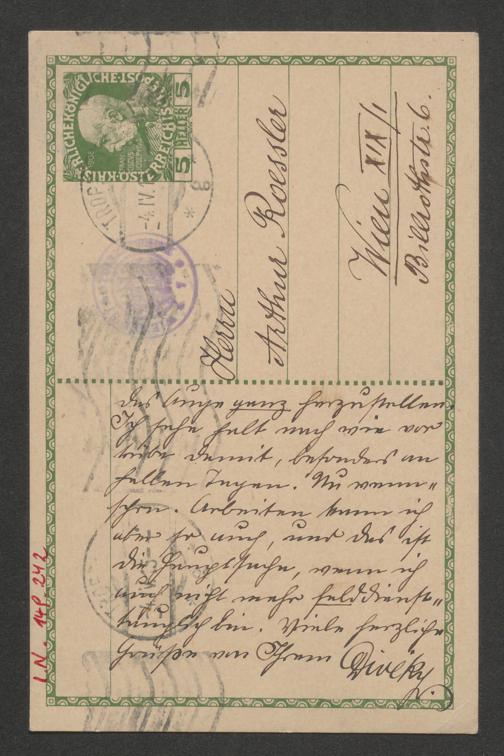 KAISERLICHE KÖNIGLICHE ÖSTERREICHISCHE POST
5 HELLER 5
TROP
-4.IV.
* 8
Herrn
Arthur Roessler
Wien XIX/1
Billrothstr. 6.
das Auge ganz herzustellen.
Ich sehe halt nach wie vor
trübe damit, besonders an
hellen Tagen.
Arbeiten kann ich
aber so auch, und das ist
die Hauptsache, wenn ich
auch nicht mehr felddienst-
tauglich bin. Viele herzliche
Grüße von Ihrem Diveky
I.N. 148.242